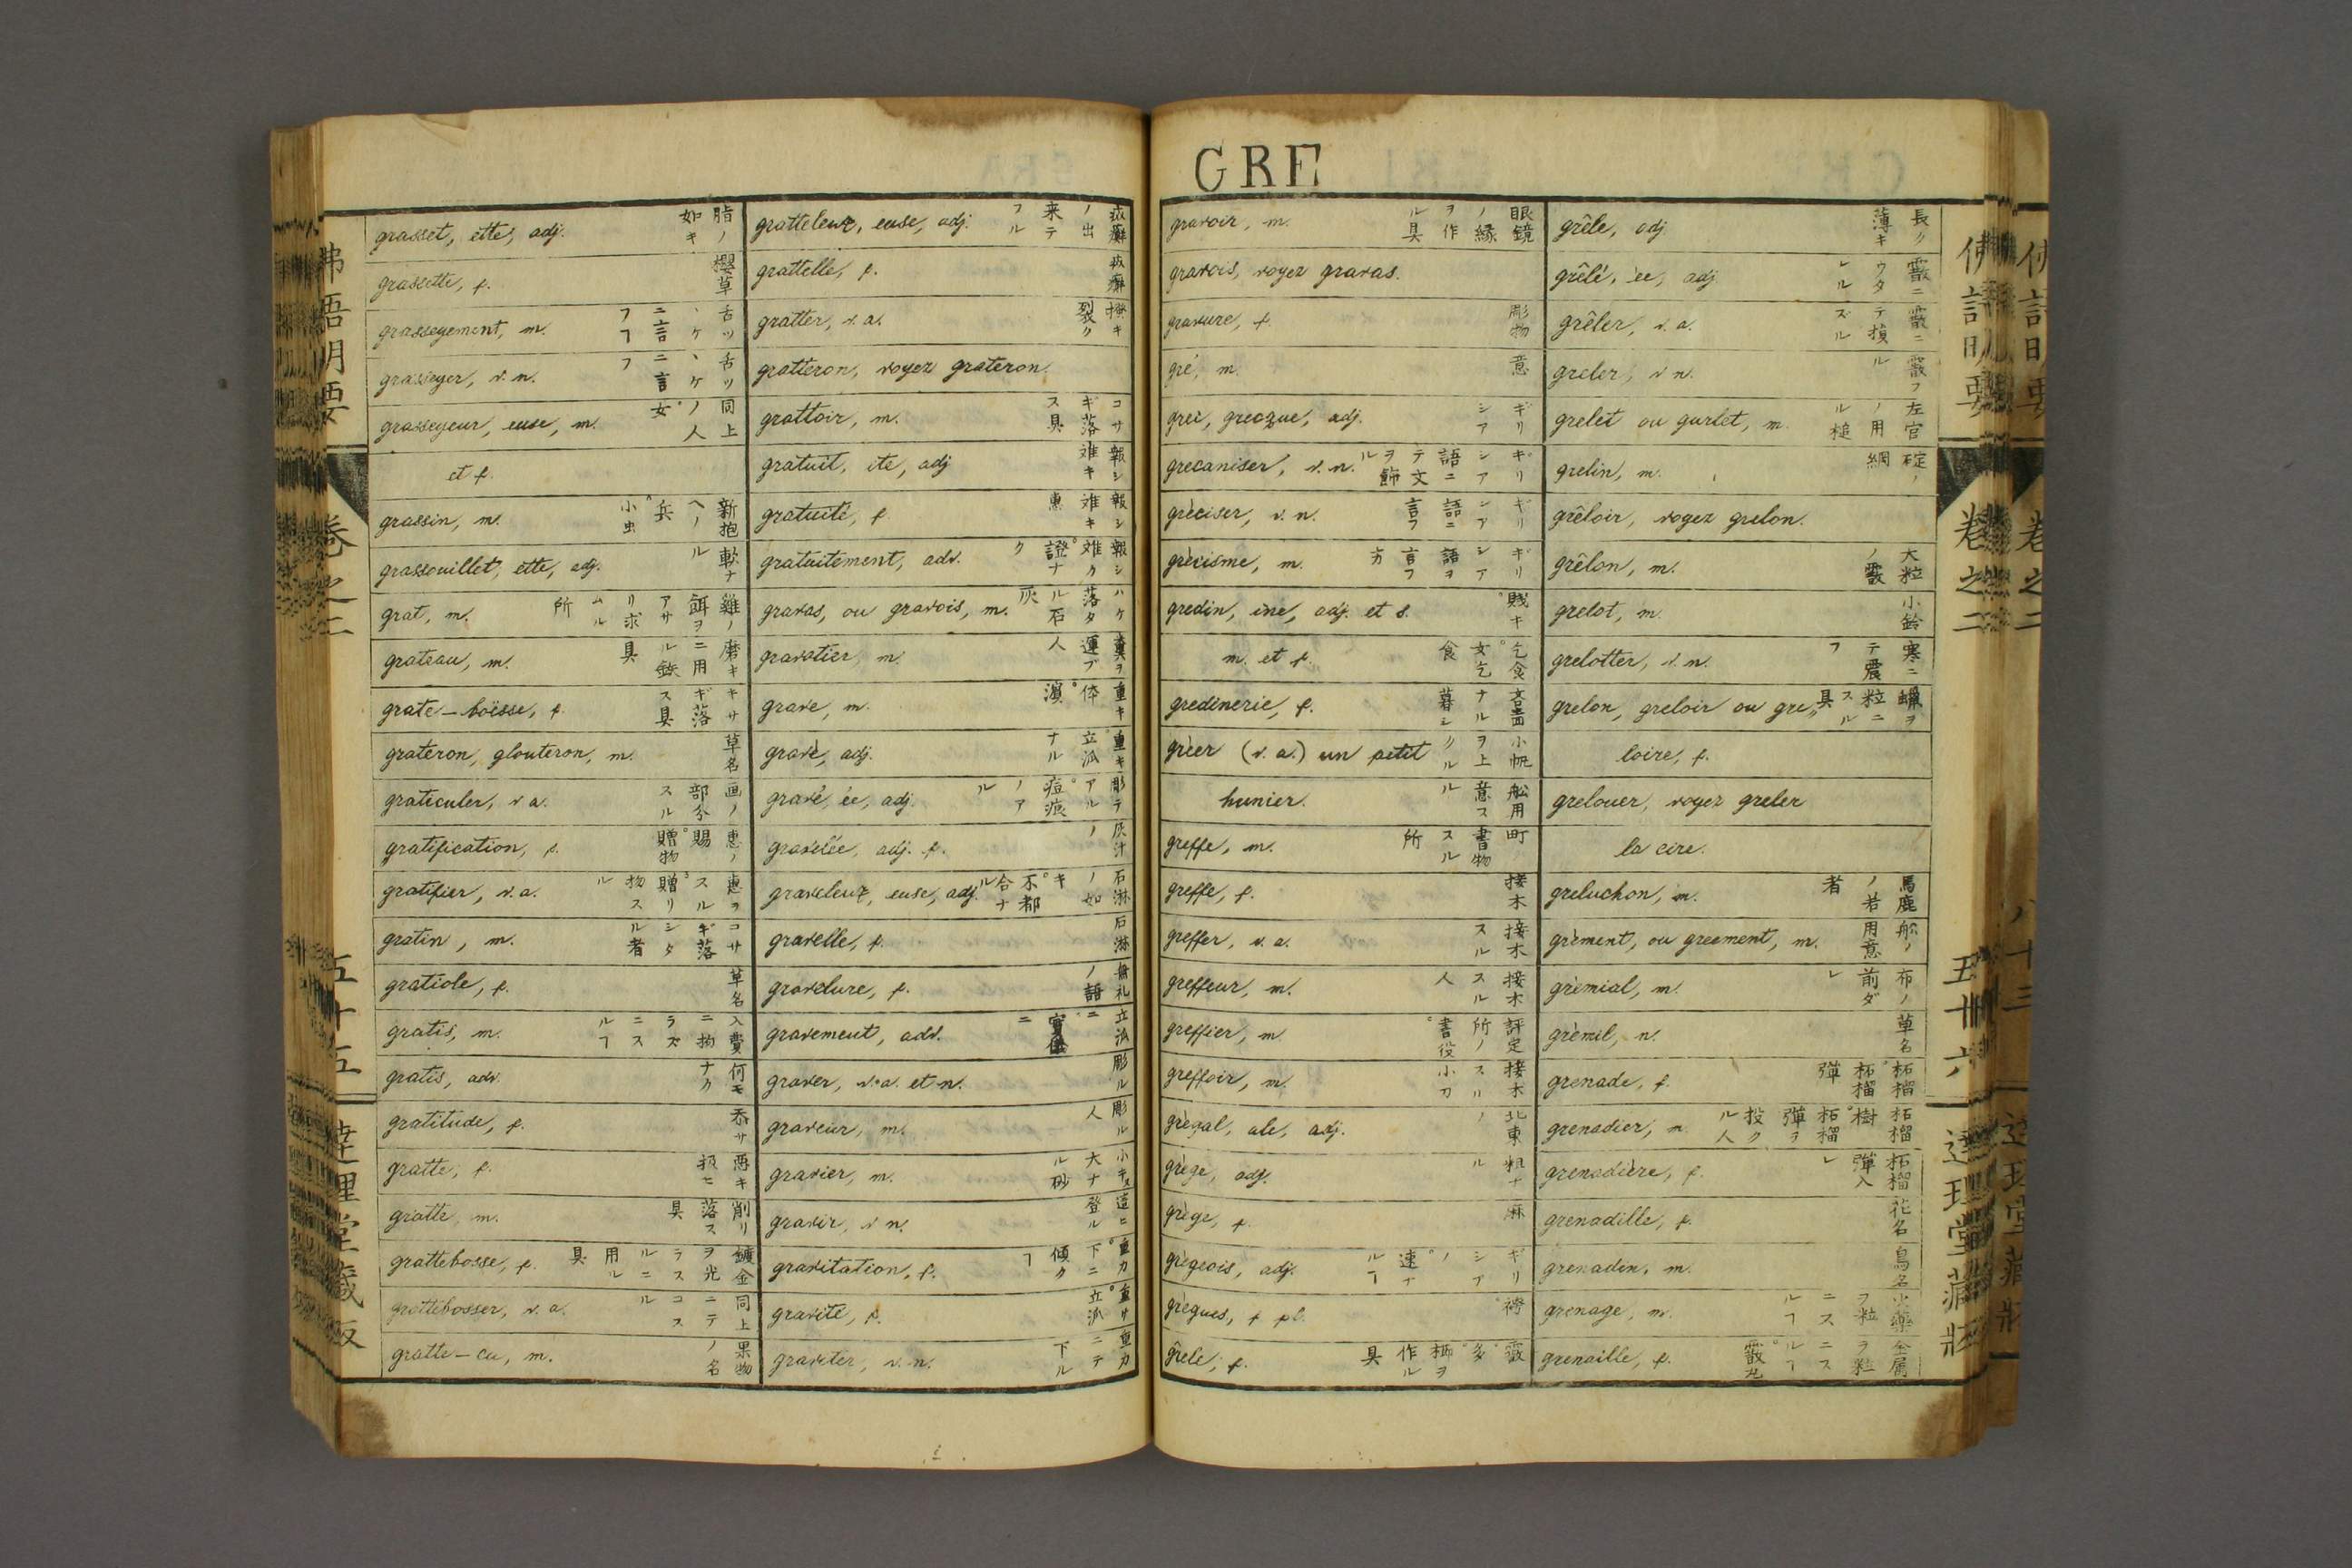 GRE
grasset, ette, adj. 脂ノ如キ
grassette, f. 櫻草
grasseyement, m. 舌ツヽケニ言フヿ
grasseyer, v. n. 舌ツヽケニ言フ
grasseyeur, euse, m. 同上ノ人
et f.
grassin, m.
grassouillet, ette, adj. 軟ナル
grat, m. 雞ノ餌ヲアサリ求ムル所
grateau, m. 磨キニ用ル鉄具
grate-boësse, f. キサギ落ス具
grateron, glouteron, m. 草名
graticuler, v. a. 画ノ部分スル
gratification, f. 恵ノ賜。贈物
gratifier, v. a.
gratin, m. コサギ落シタル者
gratiole, f. 草名
gratis, m. 入費ニ拘ラズニスルヿ
gratis, adv. 何モナク
gratitude, f. 忝サ
gratte, f.
gratte, m. 削リ落ス具
grattebosse, f. 鍍金ヲ光ラスルニ用ル具
grattebosser, v. a. 同上ニテコスル
gratte-cu, m. 果物ノ名
gratteleux, euse, adj.
grattelle, f.
gratter, v. a. 掻キ裂ク
gratteron, voyez grateron.
grattoir, m. コサギ落ス具
gratuit, ite, adj 報シ难キ
gratuité, f. 報シ难キ恵
gratuitement, adv. 報シ难ク。證ナク
gravas, ou gravois, m. ハケ落タル石灰
gravatier, m. 糞ヲ運ブ人
grave, m. 重キ体。濵
grave, adj. 重キ。立派ナル
gravé, ée, adj. 彫テアル。痘痕ノアル
gravelée, adj. f. 灰汁ノ
graveleux, euse, adj. 石淋ノ如キ。不都合ナル
gravelle, f. 石淋
gravelure, f. 無礼ノ語
gravement, adv.
graver, v. a. et n. 彫ル
graveur, m. 彫ル人
gravier, m.
gravir, v n.
gravitation, f. 重力。下ニ傾クヿ
gravité, f. 重サ。立派
graviter, v. n. 重力ニテ下ル
gravoir, m. 眼鏡ノ縁ヲ作ル具
gravois, voyez gravas.
gravure, f. 彫物
gré, m. 意
grec, grecque, adj. ギリシア
grecaniser, v. n. ギリシア語ニテ文ヲ飾ル
gréciser, v. n. ギリシア語ニ言フ
grécisme, m. ギリシア語ヲ言フ方
gredin, ine, adj. et s. 賤キ。
m. et f. 乞食。女乞食
gredinerie, f.
gréer (v. a.) un petit
hunier.
greffe, m.
greffe, f. 接木
greffer, v. a. 接木スル
greffeur, m. 接木スル人
greffier, m 評定所ノ書役。
greffoir, m. 接木スル小刀
grégal, ale, adj. 北東ノ
grège, adj. 粗ナル
grège, f. 麻
grégeois, adj.
grègues, f pl. 袴。
grêle, f.
grêle, adj 長ク薄キ
grêlé, ée, adj 霰ニウタレル
grêler, v. a. 霰ニテ損ズル
greler, v n. 霰フル
grelet ou gurlet, m. 左官ノ用ル槌
grelin, m. 碇ノ綱
grêloir, voyez grelon.
grêlon, m. 大粒ノ霰
grelot, m. 小鈴
grelotter, v. n. 寒ニテ震フ
grelon, greloir ou gre„ 蠟ヲ粒ニスル具
loire, f.
grelouer, voyez greler
la cire.
greluchon, m. 馬鹿ノ若者
grément, ou greement, m. 舩ノ用意
grémial, m. 布ノ前ダレ
grémil, n. 草名
grenade, f. 柘榴。柘榴彈
grenadier, m. 柘榴樹。柘榴彈ヲ投クル人
grenadière, f. 柘榴彈入レ
grenadille, f. 花名
grenadin, m. 鳥名
grenage, m. 火藥ヲ粒ニスルヿ
grenaille, f.
佛語明要
卷之二
五十五
達理堂藏版
佛語明要
卷之二
五十六
達理堂藏版